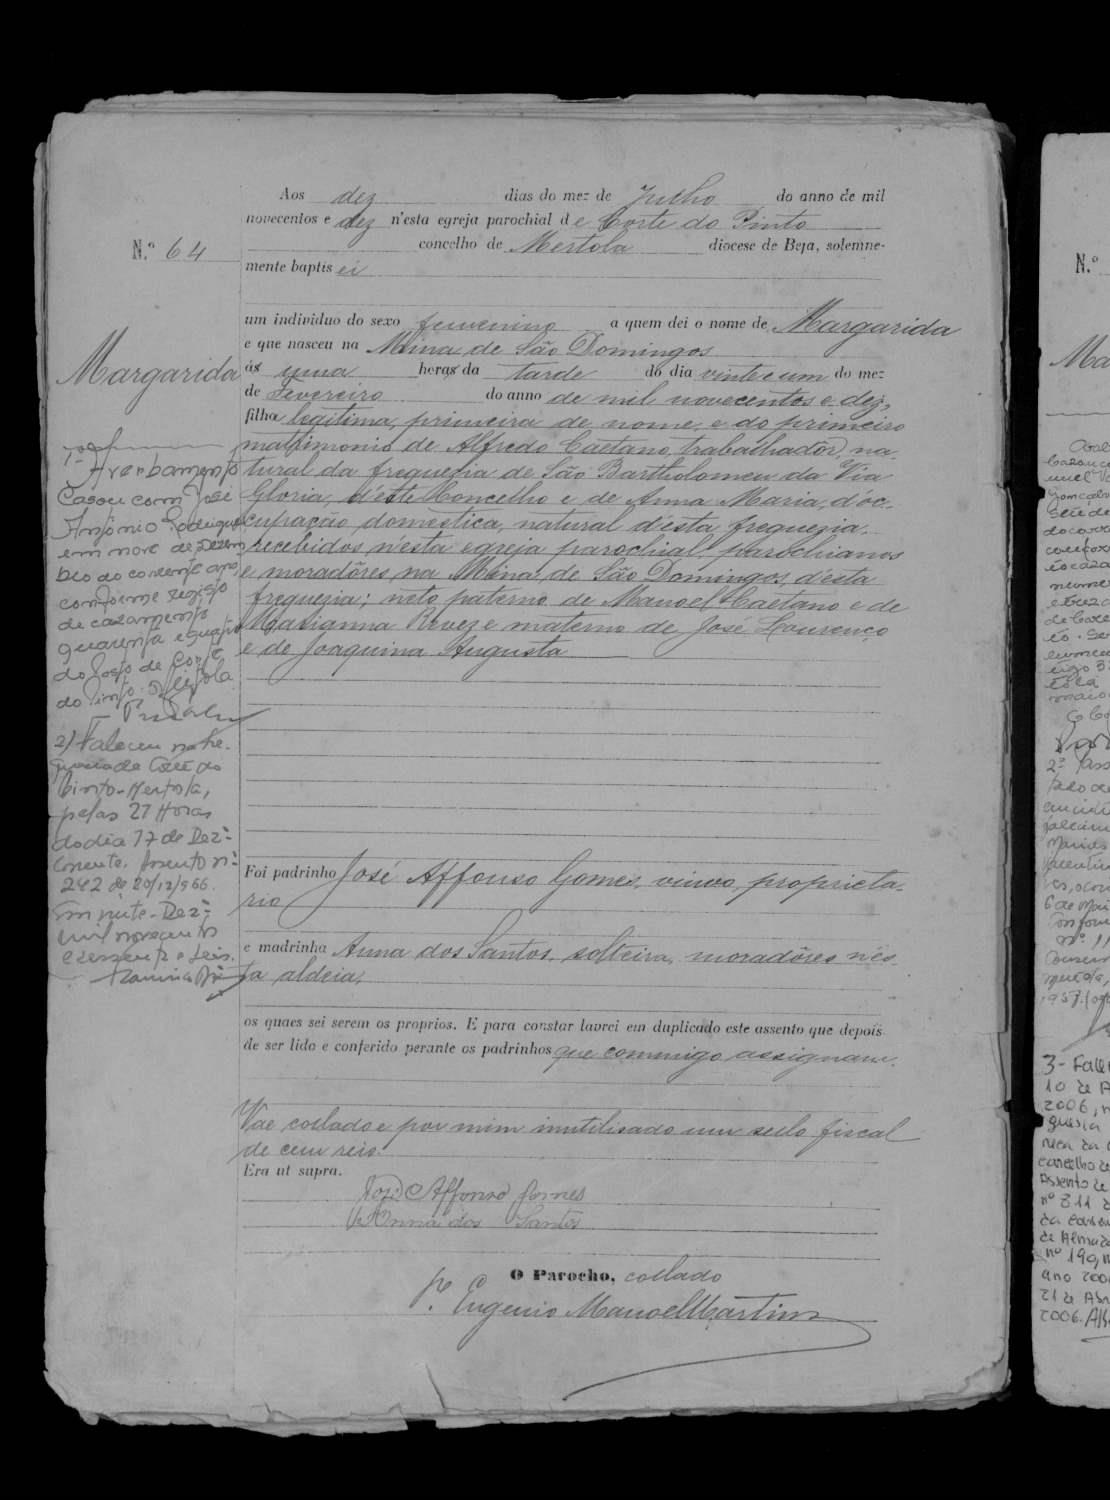 Aos dez dias do mez de Julho do anno de mil
novecentos e dez n'esta egreja parochial de Corte do Pinto
concelho de Mertola diocese de Beja, solemne-
mente baptisei
N.º 64
um individuo do sexo femenino a quem dei o nome de Margarida
e que nasceu na Mina de São Domingos
ás uma horas da tarde do dia vinte e um do mez
de Fevereiro do anno de mil novecentos e dez,
filha legitima, primeira de nome, e do primeiro
matrimonio de Alfredo Caetano, trabalhadôr, na-
tural da freguezia de São Bartholomeu da Via
Gloria, d'este Concelho e de Anna Maria, d'oc-
cupação domestica, natural d'esta freguezia,
recebidos n'esta egreja parochial, parochianos
e moradôres na Mina de São Domingos, d'esta
freguezia; neto paterno de Manoel Caetano e de
Marianna Revez e materno de José Lourenço
e de Joaquina Augusta
Margarida
1º Averbamento
Casou com José
António Rodrigues
em nove de Dezem
bro do corrente ano,
conforme registo
de casamento
quarenta e quatro
do Posto de Corte
do Pinto. Mértola
2) Faleceu na fre-
guesia de Corte do
Pinto-Mertola,
pelas 21 Horas
do dia 17 de Dez-
corrente. Assento nº
242 de 20/12/966.
Em vinte-Dez-
mil novecentos
e sessenta e seis.
Foi padrinho José Affonso Gomes, viuvo, proprieta-
rio
e madrinha Anna dos Santos, solteira, moradôres n'es-
ta aldeia,
os quaes sei serem os proprios. E para constar lavrei em duplicado este assento que depois
de ser lido e conferido perante os padrinhos que commigo assignam.
Vae collado e por mim inutilisado um sello fiscal
de cem reis.
Era ut supra.
José Affonso Gomes
Anna dos Santos
O Parocho, collado
Pe. Eugenio Manoel Martins
N.º
3- Fale
10 de A
2006, n
guesia
concelho de
Assento de
nº 311
de Almada
nº 190,
ano 200
21 de Abr
2006.